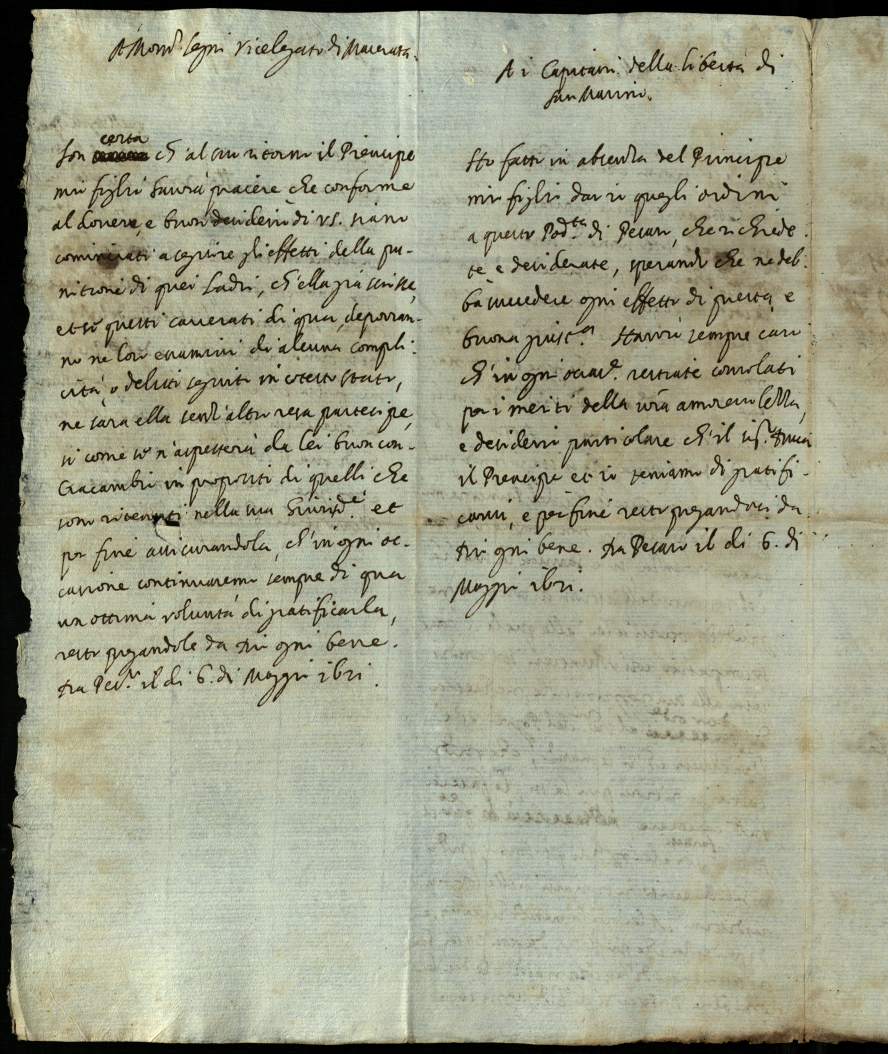 A Mons.r Segni Vicelegato di Macerata.
Son certa ch'al suo ritorno il Prencipe
mio figlio havrà piacere che conforme
al dovere, e buon desiderio di VS. siano
cominciati a seguire gli effetti della pu-
nitione di quei Ladri, ch'ella già scrisse,
et se questi carcerati di qua, deporran-
no ne loro essamini di alcuna compli-
cità, o delitti seguiti in cotesto stato,
ne sarà ella senz'altro resa partecipe,
si come io n'aspetterò da lei buon con-
tracambio in proposito di quelli che
sono ritenuti nella sua Giurisd.e et
per fine assicurandola, ch'in ogni oc-
casione continuaremo sempre di qua
un ottima voluntà di gratificarla,
resto pregandole da Dio ogni bene.
Da Pes.o il di 6. di Maggio
A i Capitani della libertà di
San Marino.
Ho fatto in absenza del Principe
mio figlio dar quegli ordini
a questo Pod.tà di Pesaro, che richiede-
te e desiderate, sperando che ne deb-
ba succedere ogni effetto di questa e
buona giust.a Havrò sempre caro
ch'in ogni occas.e restiate consolati
per i meriti della vostra amorevolezza,
e desiderio particolare ch'il Sig.r Duca
il Prencipe et io teniamo di gratifi-
carvi, e per fine resto pregandovi da
Dio ogni bene. Da Pesaro il di 6. di
Maggio